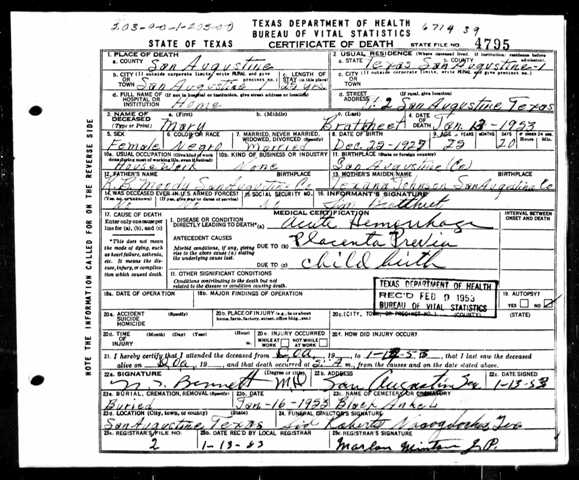 203-90-1-203-00
TEXAS DEPARTMENT OF HEALTH
BUREAU OF VITAL STATISTICS
6714 39
STATE OF TEXAS
CERTIFICATE OF DEATH
STATE FILE NO. 4795
1. PLACE OF DEATH
a. COUNTY San Augustine
2. USUAL RESIDENCE (Where deceased lived. If institution: residence before admission)
a. STATE Texas b. COUNTY San Augustine-1
b. CITY (If outside corporate limits, write RURAL and give precinct no.)
San Augustine 1
c. LENGTH OF STAY (in this place)
c. CITY (If outside corporate limits, write RURAL and give precinct no.)
d. FULL NAME OF (If not in hospital or institution, give street address or location)
HOSPITAL OR INSTITUTION Home
d. STREET ADDRESS (If rural, give location)
2 San Augustine Texas
3. NAME OF DECEASED (Type or Print)
a. (First) Mary
b. (Middle)
c. (Last)
4. DATE OF DEATH Jan 13-1953
5. SEX Female
6. COLOR OR RACE Negro
7. MARRIED, NEVER MARRIED, WIDOWED, DIVORCED (Specify) Married
8. DATE OF BIRTH Dec-23-1927
25
20
10a. USUAL OCCUPATION House Work
10b. KIND OF BUSINESS OR INDUSTRY None
11. BIRTHPLACE (State or foreign country) San Augustine (Co)
12. FATHER'S NAME BIRTHPLACE
San Augustine Co
13. MOTHER'S MAIDEN NAME BIRTHPLACE
Johnson San Augustine Co
14. WAS DECEASED EVER IN U.S. ARMED FORCES?
No
15. SOCIAL SECURITY NO.
16. INFORMANT'S SIGNATURE
MEDICAL CERTIFICATION
INTERVAL BETWEEN ONSET AND DEATH
17. CAUSE OF DEATH
Enter only one cause per line for (a), (b), and (c)
I. DISEASE OR CONDITION DIRECTLY LEADING TO DEATH* (a) Acute Hemorrhage
*This does not mean the mode of dying, such as heart failure, asthenia, etc. It means the disease, injury, or complication which caused death.
ANTECEDENT CAUSES
Morbid conditions, if any, giving rise to the above cause (a) stating the underlying cause last.
DUE TO (b) Placenta Previa
DUE TO (c) Child birth
II. OTHER SIGNIFICANT CONDITIONS
Conditions contributing to the death but not related to the disease or condition causing death.
TEXAS DEPARTMENT OF HEALTH
REC'D FEB 9 1953
BUREAU OF VITAL STATISTICS
18a. DATE OF OPERATION
18b. MAJOR FINDINGS OF OPERATION
19. AUTOPSY?
YES NO
20a. ACCIDENT SUICIDE HOMICIDE (Specify)
20b. PLACE OF INJURY (e.g., in or about home, farm, factory, street, office bldg., etc.)
20c. (CITY, TOWN, OR PRECINCT NO.) (COUNTY) (STATE)
20d. TIME OF INJURY (Month) (Day) (Year) (Hour)
20e. INJURY OCCURRED
WHILE AT WORK NOT WHILE AT WORK
20f. HOW DID INJURY OCCUR?
21. I hereby certify that I attended the deceased from DOA, 19 , to 1-13-53, that I last saw the deceased
alive on DOA, 19 , and that death occurred at m., from the causes and on the date stated above.
22a. SIGNATURE (Degree or title)
Bennett MD
22b. ADDRESS San Augustine Tex
22c. DATE SIGNED 1-13-53
23a. BURIAL, CREMATION, REMOVAL (Specify) Buried
23b. DATE Jan-16-1953
23c. NAME OF CEMETERY OR CREMATORY
23d. LOCATION (City, town, or county) (State)
San Augustine Texas
24. FUNERAL DIRECTOR'S SIGNATURE
Roberts Nacogdoches Tex
25a. REGISTRAR'S FILE NO. 2
25b. DATE REC'D BY LOCAL REGISTRAR 1-13-53
25c. REGISTRAR'S SIGNATURE
Marlon Minton J.P.
NOTE THE INFORMATION CALLED FOR ON THE REVERSE SIDE